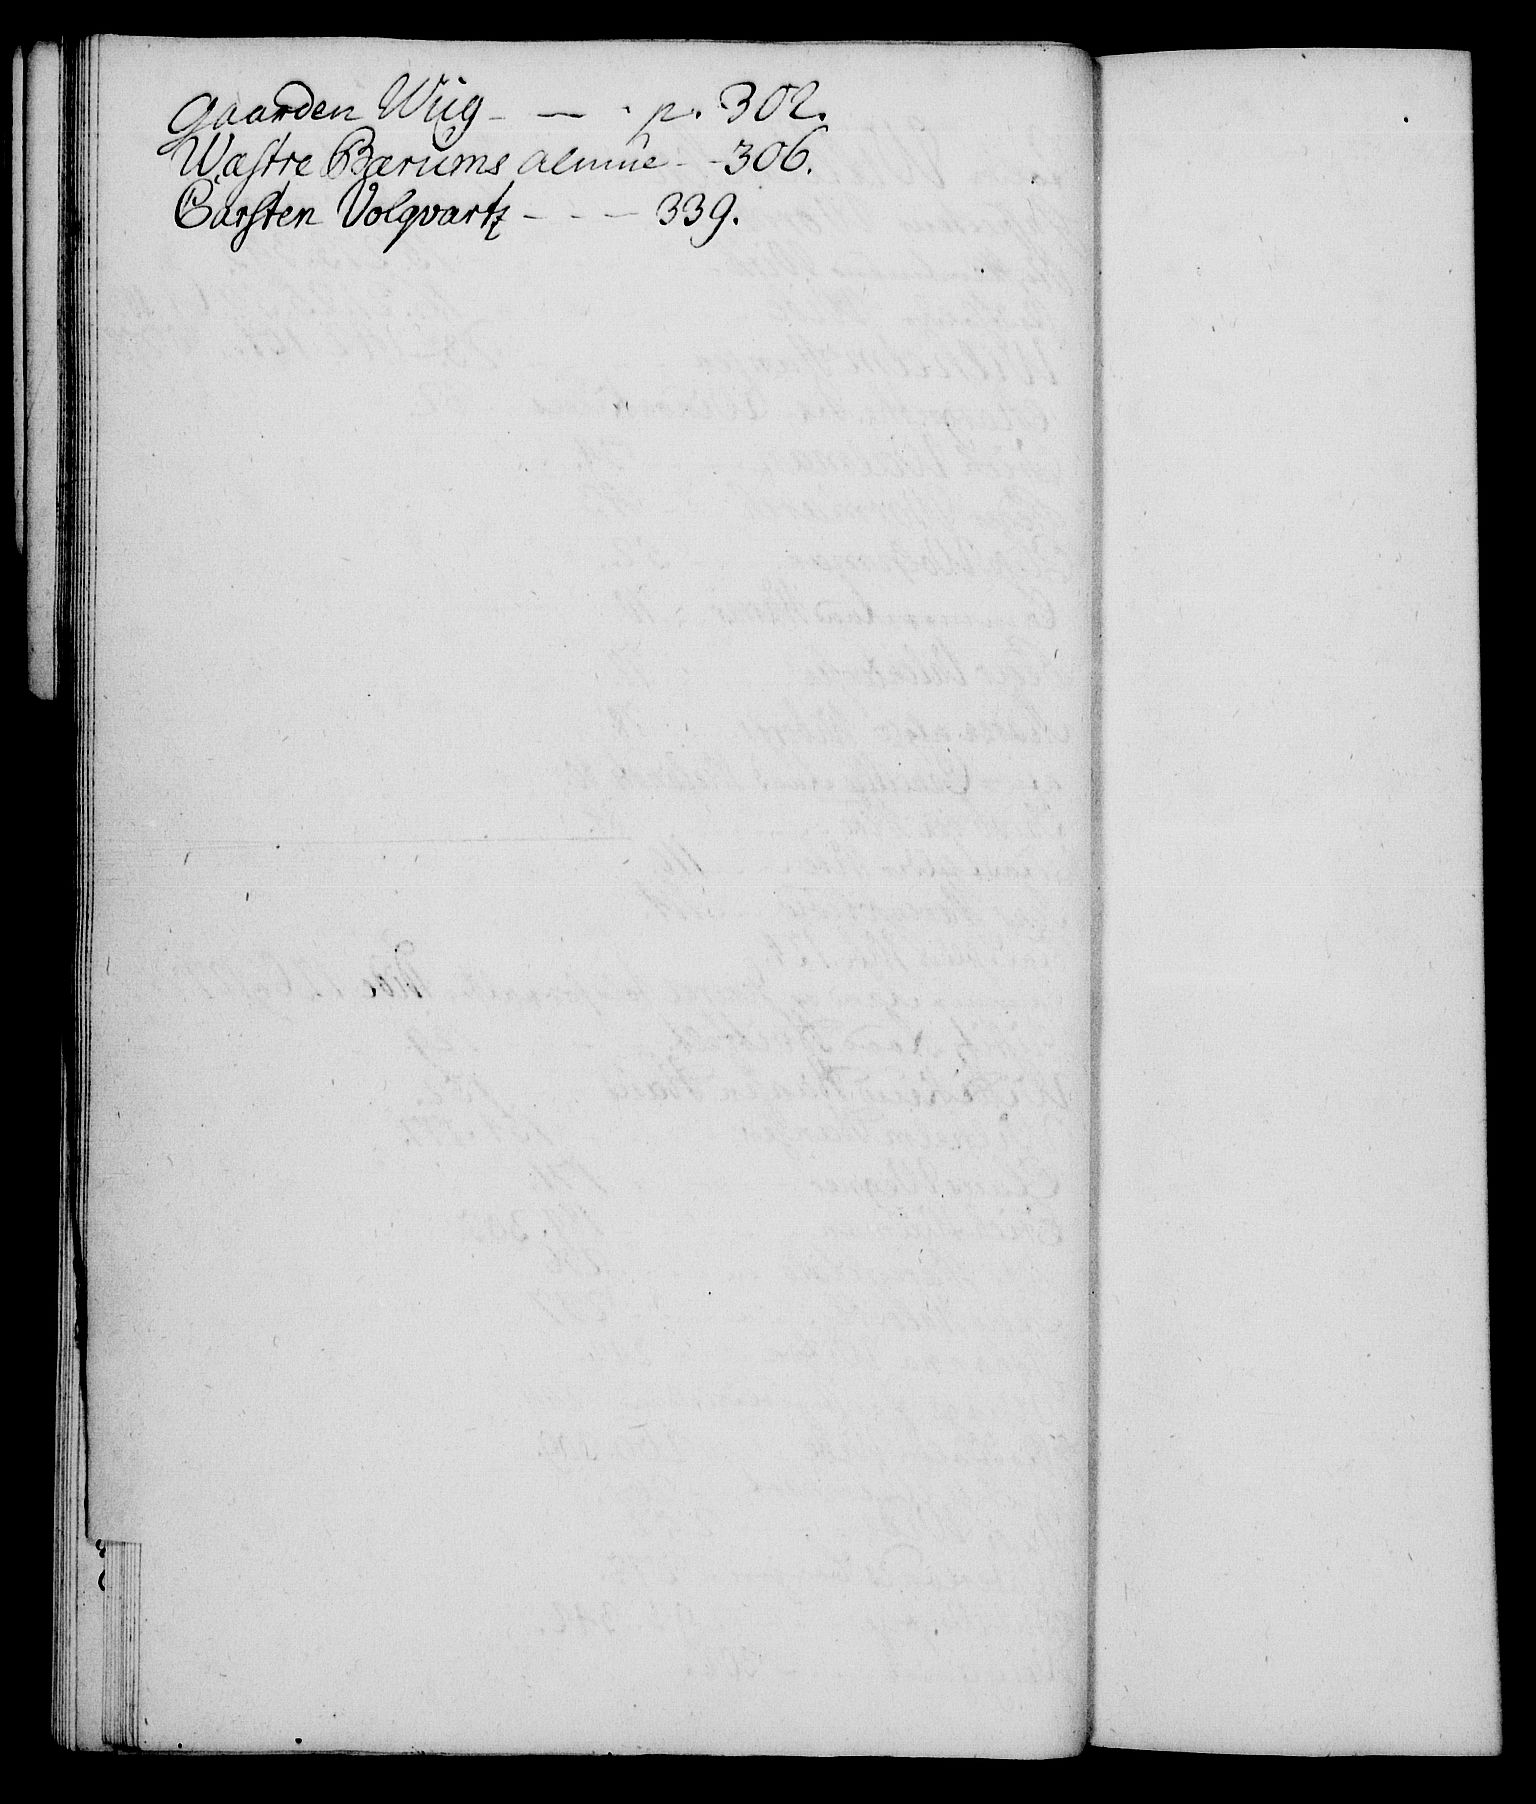 Gaarden Wiig - — - p. 302.
Wæstre Bærums Almue - - 306.
Carsten Volqvartz - - - — 339.